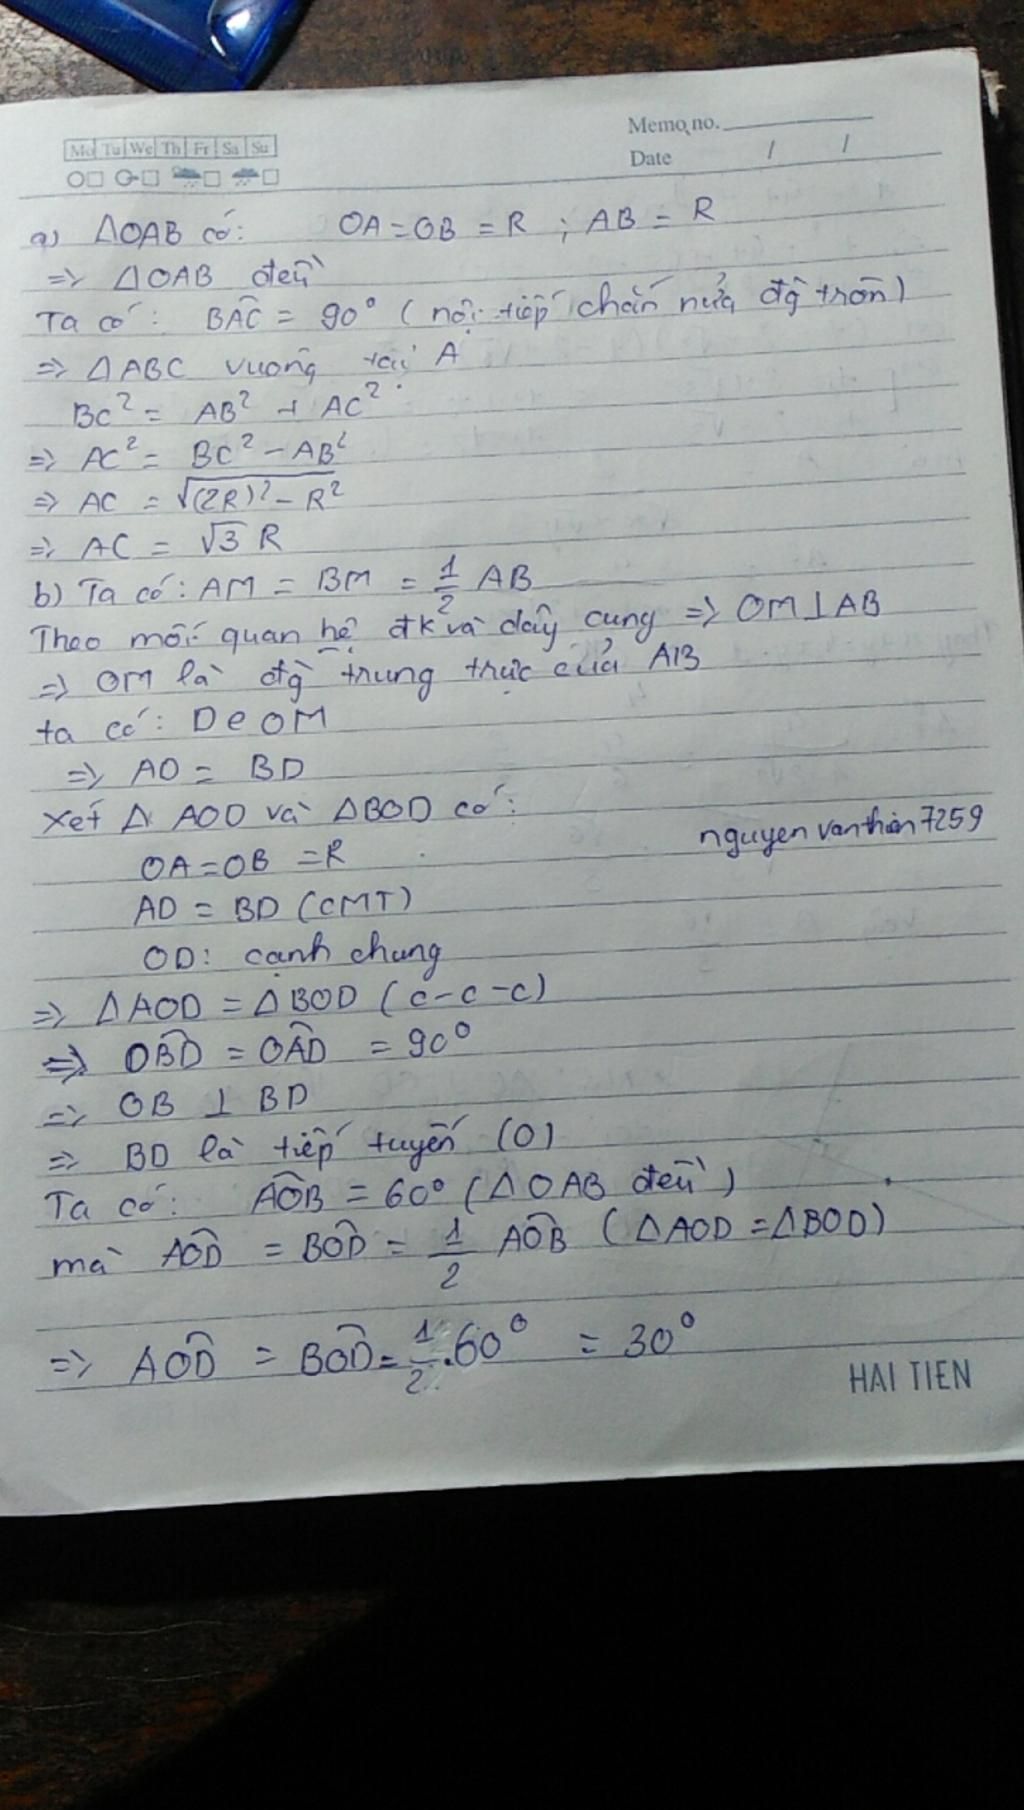 Memo no.
Mo Tu We Th Fr Sa Su
Date / /
a) ΔOAB có: OA = OB = R ; AB = R
=> ΔOAB đều
Ta có: BÂC = 90° ( nội tiếp chắn nửa đg tròn)
=> ΔABC vuông tại A
BC² = AB² + AC²
=> AC² = BC² - AB²
=> AC = √((2R)² - R²)
=> AC = √3 R
b) Ta có: AM = BM = 1/2 AB
Theo mối quan hệ đk và dây cung => OM ⊥ AB
=> OM là đg trung trực của AB
ta có: D e OM
=> AD = BD
Xét Δ AOD và ΔBOD có:
nguyenvanthien7259
OA = OB = R
AD = BD (CMT)
OD: cạnh chung
=> ΔAOD = ΔBOD ( c-c-c)
=> OB̂D = OÂD = 90°
=> OB ⊥ BD
=> BD là tiếp tuyến (O)
Ta có: AÔB = 60° (ΔOAB đều)
mà AÔD = BÔD = 1/2 AÔB ( ΔAOD = ΔBOD)
=> AÔD = BÔD = 1/2 . 60° = 30°
HAI TIEN